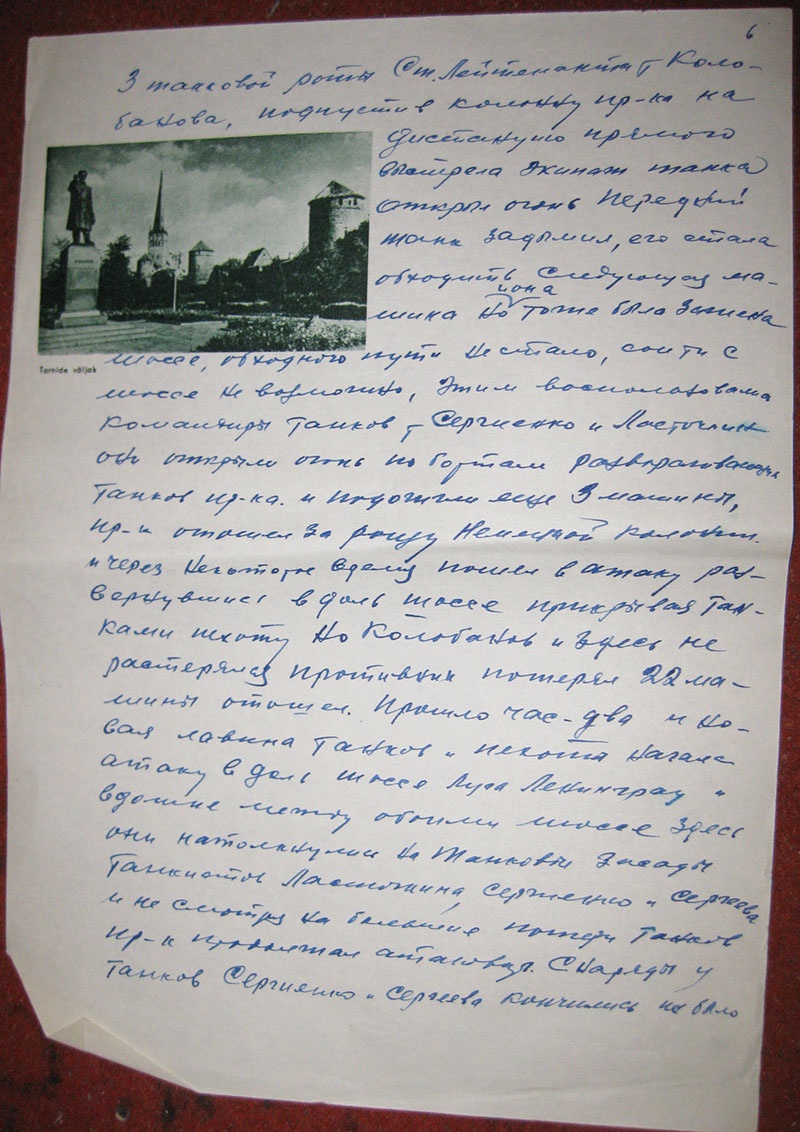 6
3 танковой роты Ст. Лейтенанта т Коло-
банова, подпустив колонну пр-ка на
дистанцию прямого
выстрела экипаж танка
открыл огонь Передний
танк задымил, его стала
обходить следующая ма-
шина но она тоже была зажжена
Tornide väljak
шоссе, обходного пути не стало, сойти с
шоссе не возможно, этим воспользовались
командиры танков т Сергиенко и Ласточкин
они открыли огонь по бортам разворачивающихся
танков пр-ка. и подожгли еще 3 машины,
пр-к отошел за рощу Немецкой колонии.
и через некоторое время пошел в атаку раз-
вернувшись в доль шоссе прикрывая тан-
ками пехоту Но Колобанов и здесь не
растерялся противник потерял 22 ма-
шины отошел. Прошло час-два и но-
вая лавина танков и пехота начала
атаку в доль шоссе Луга Ленинград и
между обоими шоссе Здесь
они натолкнулись на танковые засады
танкистов Ласточкина, Сергиенко и Сергеева
и не смотря на большие потери танков
пр-к продолжал атаковать. Снаряды у
танков Сергиенко и Сергеева кончились не было